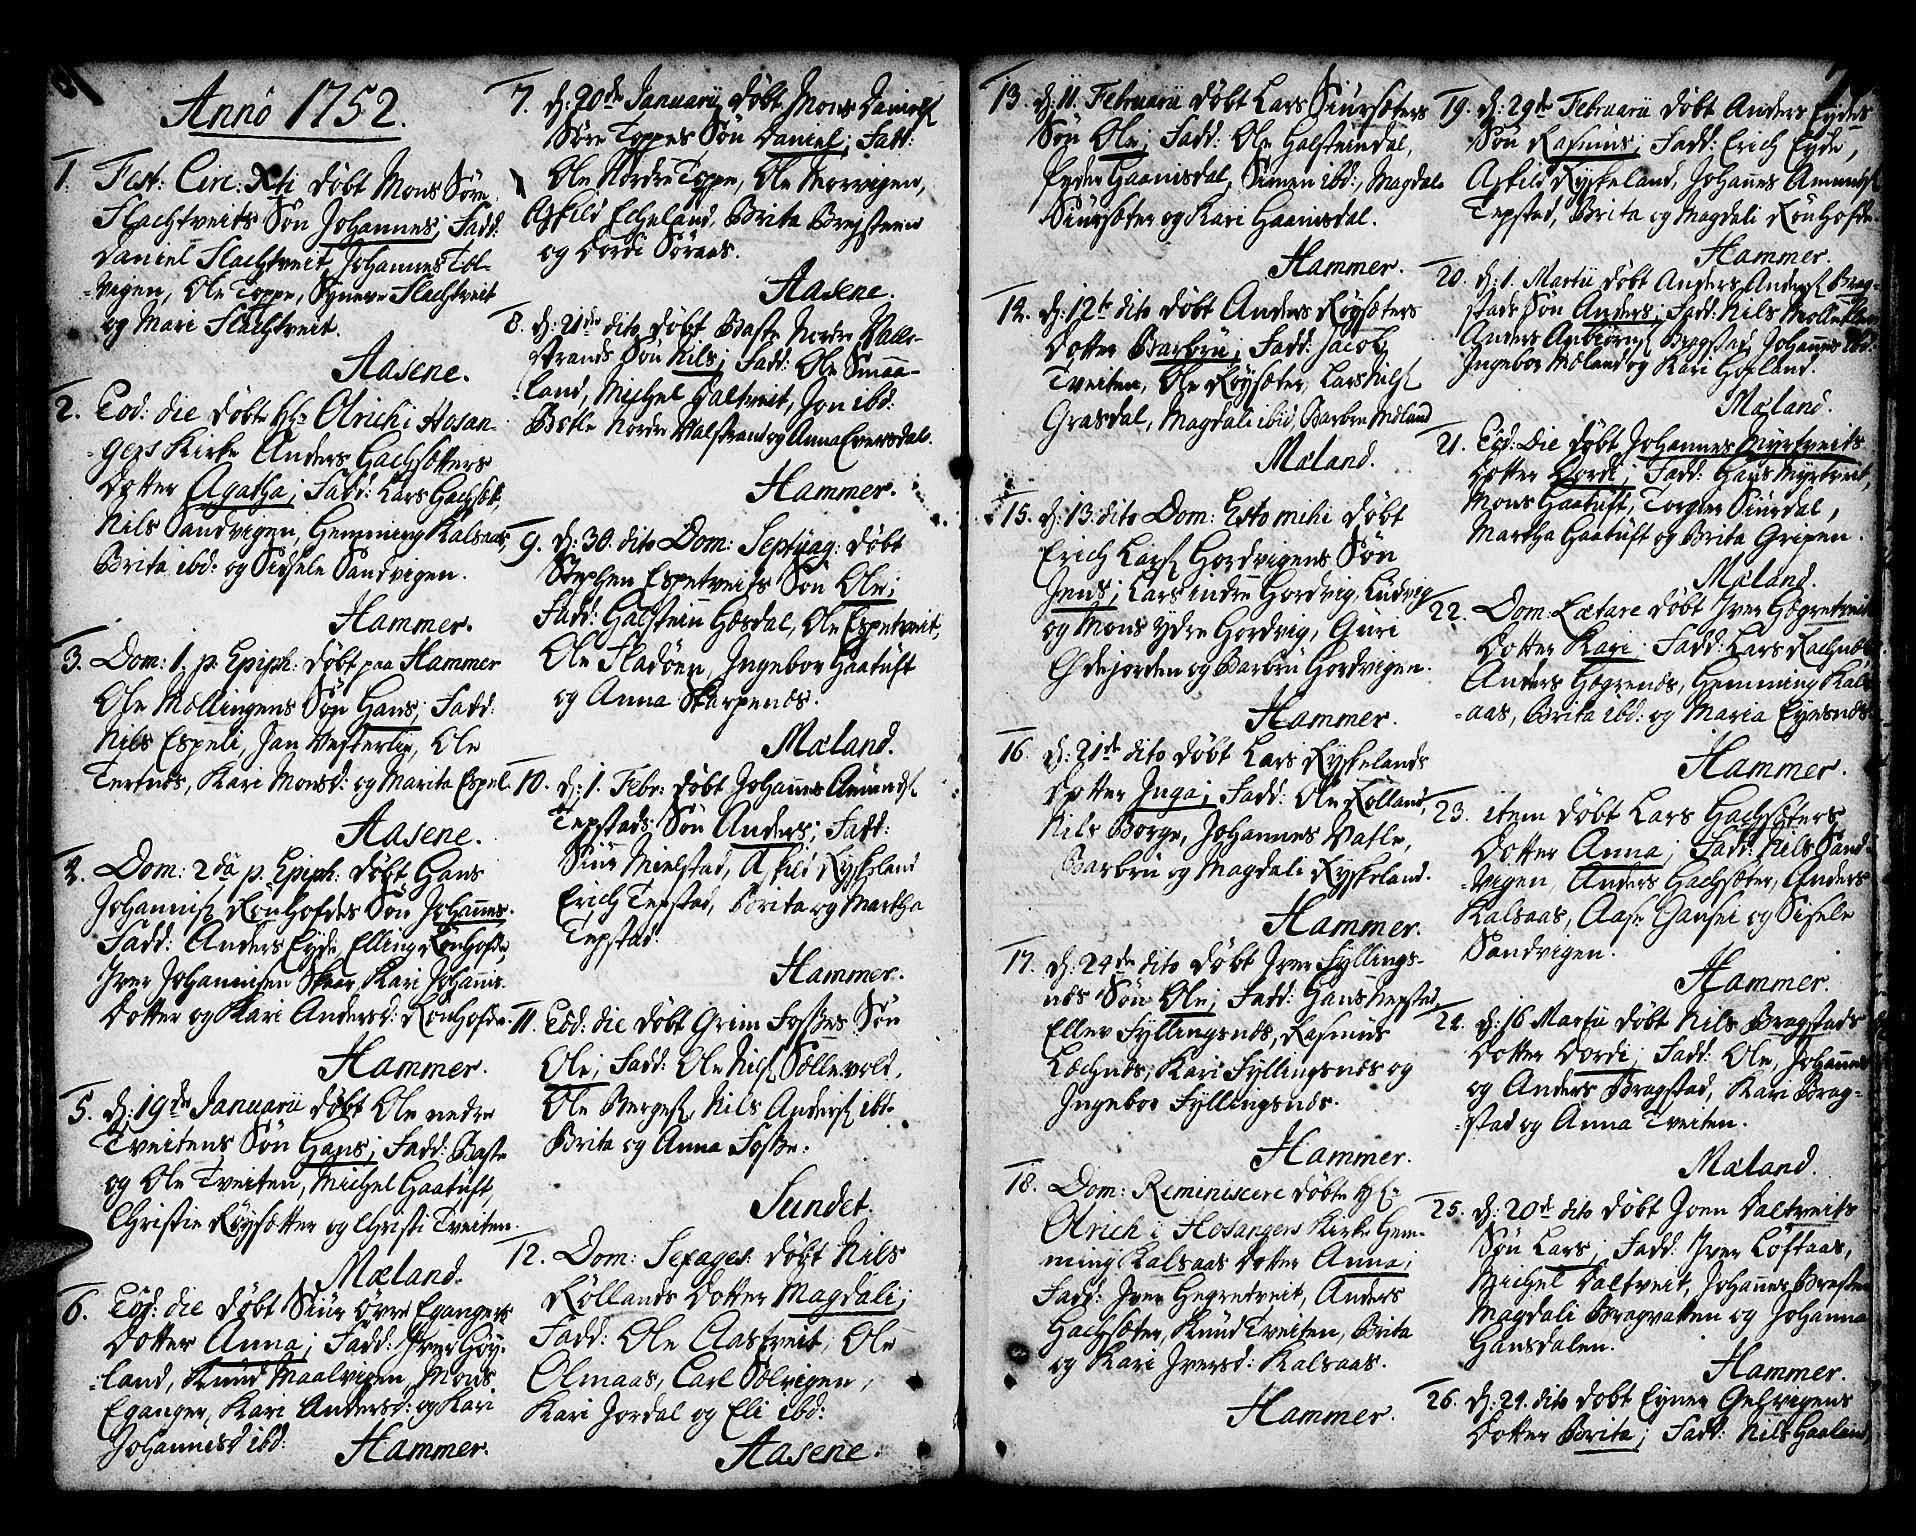 Anno 1752.
1. Fest: Circ: Xti döbt Mons Söre
Flachtveits Sön Johannes; Fadd:
Daniel Flachtveit, Johannes Tol-
-vigen, Ole Toppe, Syneve Flachtveit
og Mari Flachtveit.
Aasene.
2. Eod: die döbte Hr Olrich i Hosan-
-gers Kirke Anders Hachsötters
Dotter Agatha; Fadd: Lars Hachsöt,
Nils Sandvigen, Hemming Kalsaas,
Brita ibd: og Sissele Sandvigen.
Hammer.
3. Dom: 1. p. Epiph: döbt paa Hammer
Ole Mællingens Sön Hans; Fadd:
Nils Espeli, Jan Vesterlie, Ole
Tertnæs, Kari Monsd: og Marita Espel.
Aasene.
4. Dom: 2da p. Epiph: döbt Hans
Johannisf Rönhofdes Sön Johannes.
Fadd: Anders Eyde, Elling Rönhofde,
Iver Johannisen Skaar, Kari Johannis
Dotter og Kari Andersd: Rönhofde.
Hammer.
5. d: 19de Januarii döbt Ole nedre
Tveitens Sön Hans; Fadd: Baste
og Ole Tveiten, Michel Haatuft,
Christie Röysötter og Christi Tveiten.
Mæland.
6. Eod: die döbt Siur övre Egangers
Dotter Anna; Fadd: Iver Höy-
-land, Knud Maalvigen, Mons
Eganger, Kari Andersd: og Kari
Johannisd ibd:
Hammer.
7. d: 20de Januarii döbt Mons Danielsf
Söre Toppes Sön Daniel; Fadd:
Ole Nordre Toppe, Ole Morvigen,
Askild Echeland, Brita Breistein
og Dordi Söraas.
Aasene.
8. d: 21de dito döbt Baste Nordre Valle-
strands Sön Nils; Fadd: Ole Smaa-
-land, Michel Daltveit, Jon ibd:
Botle Nordre Valstrand og Anna Eversdal.
Hammer.
9. d: 30. dito Dom: Septuag: döbt
Stephen Espetveits Sön Ole;
Fadd: Halstein Hæsdal, Ole Espetveit,
Ole Fladöen, Ingebor Haatuft
og Anna Skarpenæs.
Mæland.
10. d: 1. Febr: döbt Johannes Amundsf
Tepstads Sön Anders; Fadd:
Siur Mielstad, Askild Ryskeland
Erich Tepstad, Brita og Martha
Tepstad.
Hammer.
11. Eod: die döbt Grim Fosses Sön
Ole; Fadd: Ole Nilsf Sollevold,
Ole Bergesf, Nils Andersf ibd.
Brita og Anna Fosse.
Sundet.
12. Dom: Sexages: döbt Nils
Röllands Dotter Magdali;
Fadd: Ole Aastveit, Ole
Olmaas, Carl Sælvigen,
Kari Jordal og Eli ibd:
Aasene.
13. d: 11. Februarii döbt Lars Siursæters
Sön Ole; Fadd: Ole Halsteindal,
Peder Haanisdal, Simen ibd:, Magdale
Siursæter og Kari Haanisdal.
Hammer.
14. d: 12te dito döbt Anders Röysæters
Dotter Barbru; Fadd: Jacob
Tveiten, Ole Röysæter, Lars Nilsf
Grasdal, Magdali ibid, Barbru Mæland
Mæland.
15. d: 13. dito Dom: Esto mihi döbt
Erich Larsf Hordvigens Sön
Jens; Lars indre Hordvig, Ludvig
og Mons ydre Hordvig, Guri
Ehdejorden og Barbru Hordvigen.
Hammer.
16. d: 21de dito döbt Lars Ryskelands
Dotter Inga; Fadd: Ole Rolland,
Nils Borge, Johannes Vatle,
Barbru og Magdali Ryskeland.
Hammer.
17. d: 24de dito döbt Iver Fyllings-
næs Sön Ole; Fadd: Hans Nepstad,
Ellev Fyllingsnæs, Rasmus
Læchnæs, Kari Fyllingsnæs og
Ingebor Fyllingsnæs.
Hammer.
18. Dom: Reminiscere döbte Hr
Olrich i Hosangers Kirke Hem-
ming Kalsaas Dotter Anna;
Fadd: Iver Hegretveit, Anders
Hachsæter, Knud Tveiten, Brita
og Kari Iversd: Kalsaas.
Hammer.
19. d: 29de Februarii döbt Anders Eydes
Sön Rasmus; Fadd: Erich Eyde,
Askild Ryskeland, Johannes Amundsf
Tepstad, Brita og Magdali Rönhofde.
Hammer.
20. d: 1. Martii döbt Anders Andersf Brag-
stads Sön Anders; Fadd: Nils
Anders Anbiörnsf Bragstad, Johannes ibd:
Ingebor Mæland og Kari Hopland.
Mæland.
21. Eod: Die döbt Johannes Myrtveits
Dotter Dordi; Fadd: Hans Myrtveit,
Mons Haatuft, Torger Siurdal,
Martha Haatuft og Brita Gripen.
Mæland.
22. Dom: Lætare döbt Iver Hægretveits
Dotter Kari; Fadd: Lars
Anders Hægrenæs, Hemming Kals-
-aas, Brita ibd: og Maria Eyesnæs.
Hammer.
23. item döbt Lars Hachsæters
Dotter Anna; Fadd: Nils Sand-
-vigen, Anders Hachsæter, Anders
Kalsaas, Aase Hansei og Sisele
Sandvigen.
Hammer.
24. d: 16 Martii döbt Nils Bragstads
Dotter Dordi; Fadd: Ole, Johannes
og Anders Bragstad, Kari Brag-
-stad og Anna Tveiten.
Mæland.
25. d: 20de dito döbt Joen Daltveits
Sön Lars; Fadd: Iver Loftaas,
Michel Daltveit, Johannes Breistein
Magdali Bragvatten og Johanna
Hansdalen.
Hammer.
26. d: 24. dito döbt Eyner Gelvigens
Dotter Brita; Fadd: Nils Haaland,